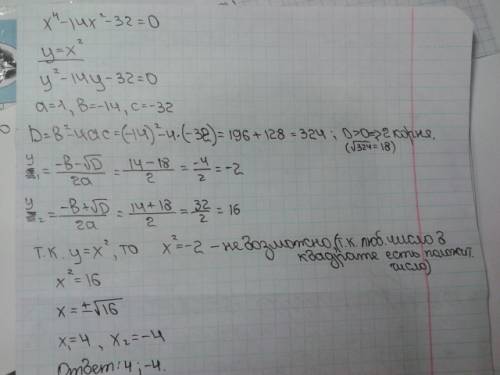 x⁴-14x²-32=0
y=x²
y²-14y-32=0
a=1, в=-14, c=-32
D=в²-4ac=(-14)²-4·(-32)=196+128=324; D>0=>2 корня.
(√324=18)
y₁=(-в-√D)/2a=(14-18)/2=-4/2=-2
y₂=(-в+√D)/2a=(14+18)/2=32/2=16
т.к. y=x², то x²=-2 - невозможно (т.к. люб. число в
квадрате есть положит.
число)
x²=16
x=±√16
x₁=4, x₂=-4
Ответ: 4; -4.